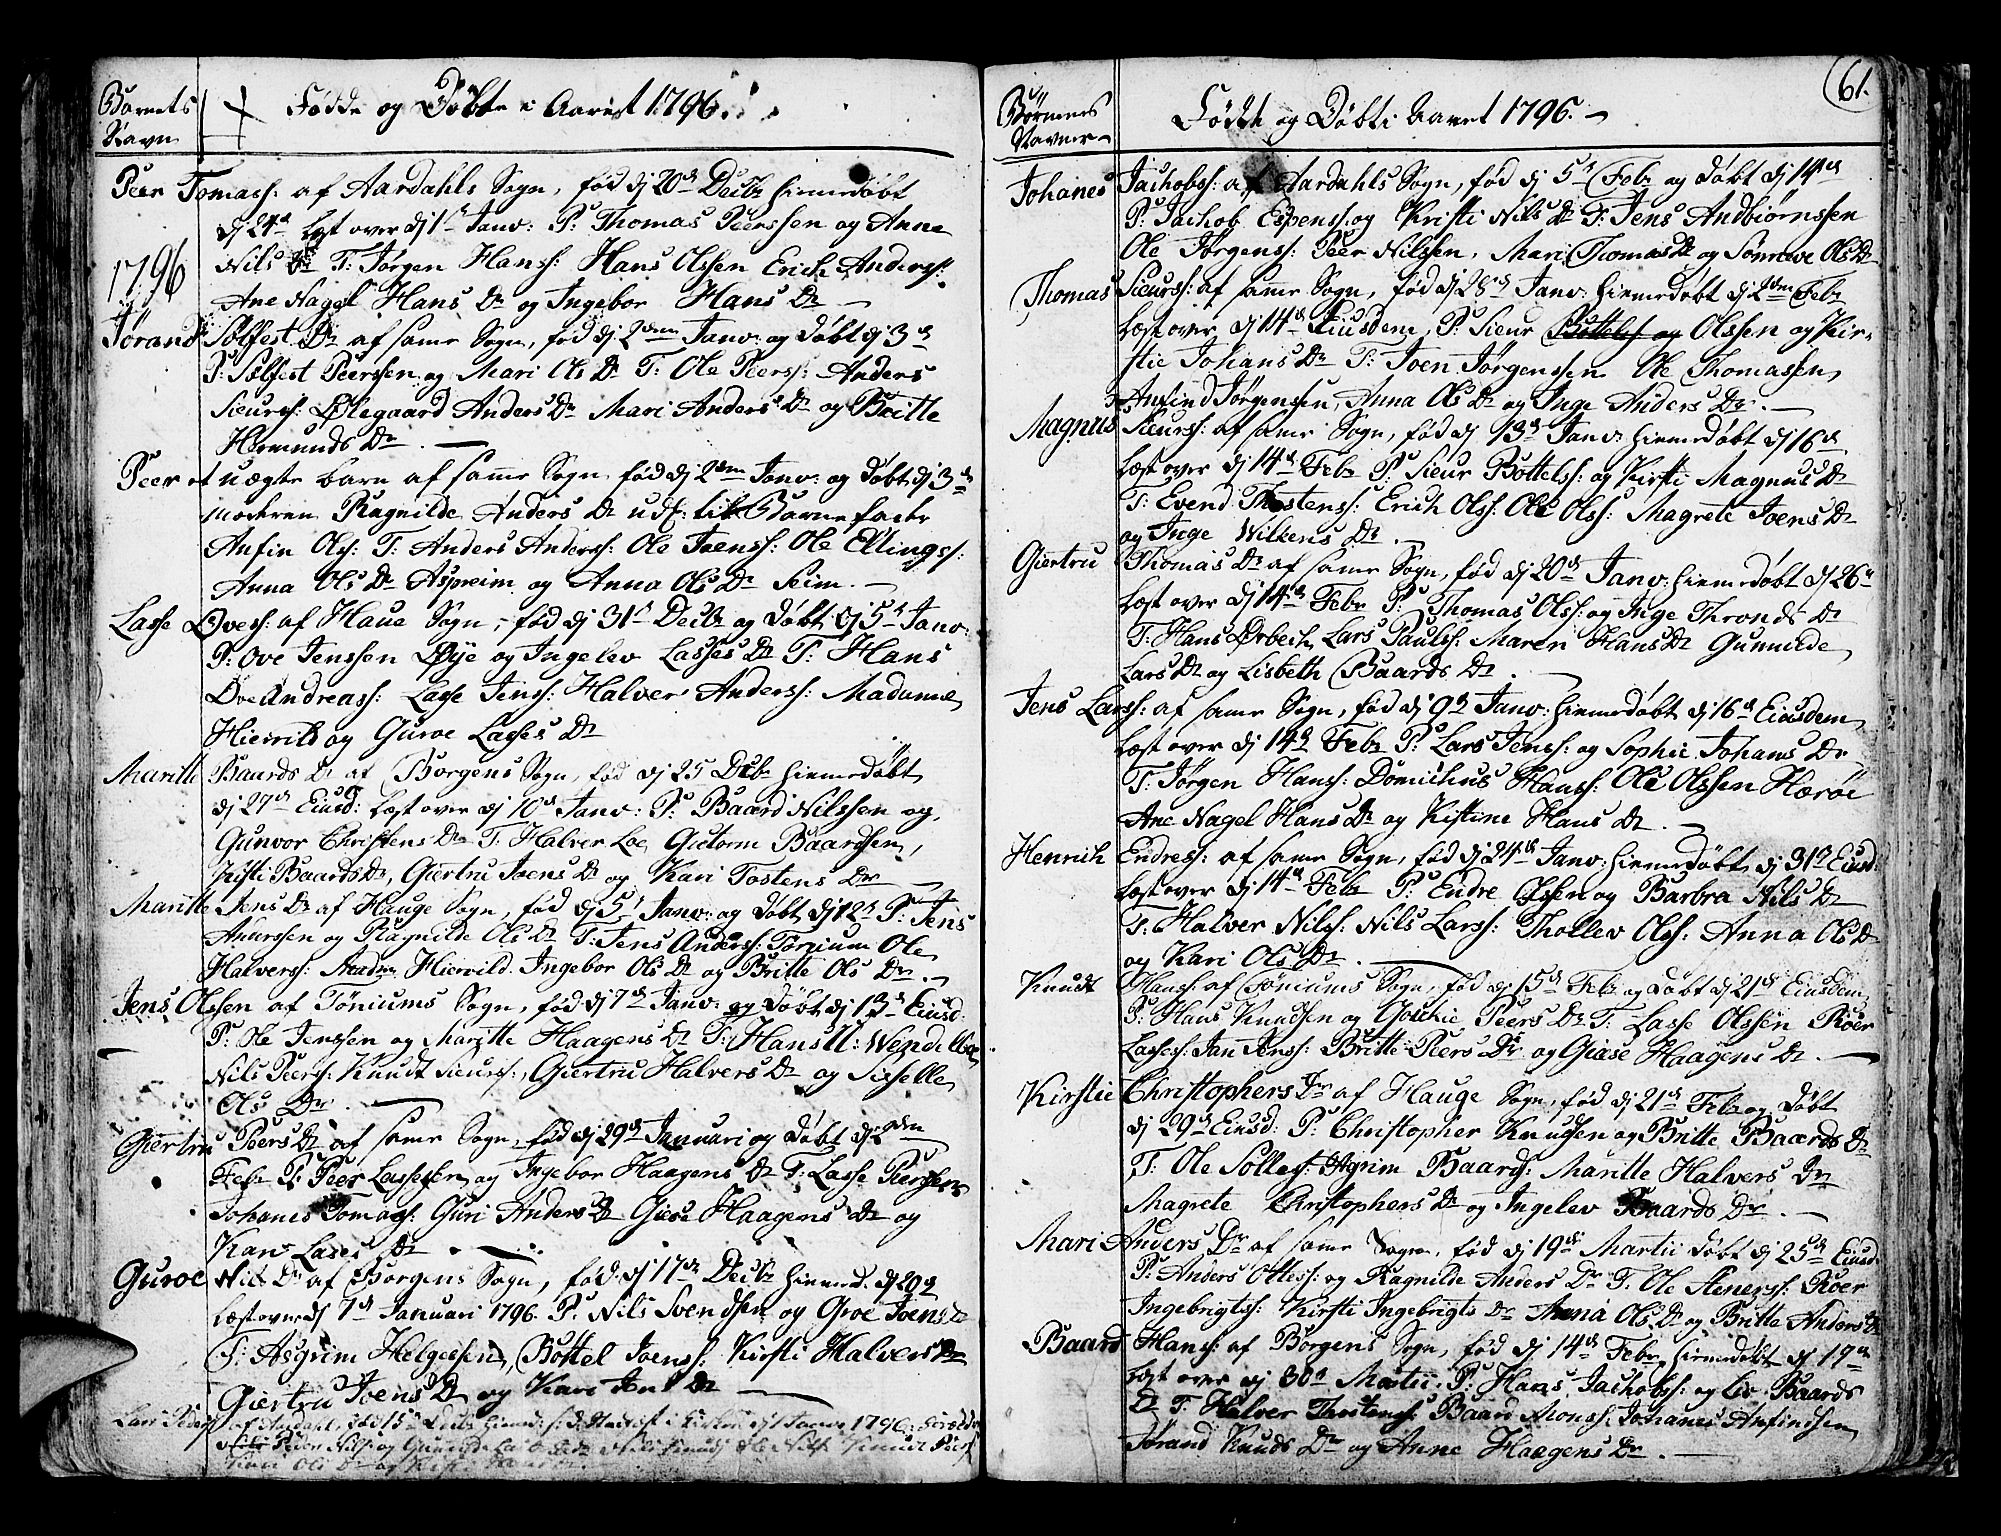 Barnets
Navn
Fødde og Døbte i Aaret 1796.
Peer Tomass: af Aardahls Sogn, fød dj 20de Decbr hiemedøbt
dj 24de Læst over dj 1ste Janv: P: Thomas Peerssen og Anne
Nils Dr T: Jørgen Hanss: Hans Olssen Erich Anderss:
Ane Nagel Hans Dr og Ingebor Hans Dr
1796
Jørand Sølfest Dr af samme Sogn, fød dj 2den Janv: og døbt dj 3de
P: Sølfest Peerssen og Mari Ols Dr T: Ole Peerss: Anders
Sieurss: Ølegaard Anders Dr Mari Anders Dr og Britte
Hermunds Dr
Peer et uægte barn af samme Sogn fød dj 2den Janv: og døbt dj 3de
moderen Ragnilde Anders Dr udl: til Barnefader
Anfin Olss: T: Anders Anderss: Ole Joenss: Ole Ellingss:
Anna Ols Dr Aspreim og Anna Ols Dr Seim.
Lasse Ovess: af Haue Sogn, fød dj 31te Decbr og døbt dj 5te Janv:
P: Ove Jenssen Øye og Ingelev Lasses Dr T: Hans
Ove Andreass: Lasse Jenss: Halver Anderss: Madamme
Hiervild og Guroe Lasses Dr
Maritte Baards Dr af Borgens Sogn, fød dj 25 Decbr hiemedøbt
dj 27de Eiusd: Læst over dj 10de Janv: P: Baard Nilssen og
Gunvor Christens Dr T: Halver Loe, Guttorm Baardsen,
Kisti Baards Dr, Giertru Joens Dr og Kari Tostens Dr
Maritte Jens Dr af Hauge Sogn, fød dj 5te Janv: og døbt dj 12te P: Jens
Anderssen og Ragnilde Ols Dr T: Jens Anderss: Tønium Ole
Halverss: Madm Hiervild Ingebor Ols Dr og Britte Ols Dr.
Jens Olssen af Tøniums Sogn, fød dj 7de Janv: og døbt dj 13de Eiusd:
P: Ole Jenssen og Maritte Haagens Dr T: Hans
Nils Peerss: Knudt Sieurss: Giertru Halvers Dr og Sisselle
Ols Dr
Giertru Peers Dr af samme Sogn, fød dj 29de Januari og døbt dj 2den
Febr P: Peer Lassessen og Ingebor Haagens Dr T: Lasse Pierssen
Johanes Tomass: Guri Anders Dr Giøse Haagens Dr og
Kari Lasses Dr
Guroe Nils Dr af Borgens Sogn, fød dj 17de Decbr hiemd: dj 20de
Læst over dj 7de Januari 1796. P: Nils Svendsen og Groe Joens Dr
T: Asgrim Helgesen, Bottel Joenss: Kirsti Halvers Dr
Giertru Joens Dr og Kari Jens Dr
61.
Børnenes
Navner
Fødde og Døbte i Aaret 1796.
Johanes Jachobss: af Aardahls Sogn, fød dj 5te Febr og døbt dj 14de
P: Jachob Espenss: og Kristi Nils Dr T: Jens Andbiørnssen
Ole Jørgenss: Peer Nilssen, Mari Thomas Dr og Sønneve Ols Dr
Thomas Sieurss: af samme Sogn, fød dj 28de Janv: hiemedøbt dj 2den Febr
Læst over dj 14de Eiusdem, P: Sieur Olssen og Kir-
stie Johans Dr T: Joen Jørgenssen Ole Thomassen,
Anfind Jørgensen, Anna Ols Dr og Inge Anders Dr.
Magnus Sieurss: af samme Sogn, fød dj 13de Janv: hiemedøbt dj 16de
Læst over dj 14de Febr P: Sieur Bottelss: og Kirsti Magnus Dr
T: Evend Thostenss: Erich Olss: Ole Olss: Magrete Joens Dr
og Inge Wilkens Dr.
Giertru Thomas Dr af samme Sogn, fød dj 20de Janv: hiemedøbt dj 26de
Læst over dj 14de Febr P: Thomas Olss: og Inge Thronds Dr
T: Hans Ørbech, Lars Paulss: Maren Hans Dr Gunnilde
Lars Dr og Lisbeth Baards Dr.
Jens Larss: af samme Sogn, fød dj 9de Janv: hiemedøbt dj 16de Eiusdem,
Læst over dj 14de Febr P: Lars Jenss: og Sophie Johans Dr
T: Jørgen Hanss: Domichus Hanss: Ole Olssen Hærøe
Ane Nagel Hans Dr og Kistine Hans Dr.
Henrich Endress: af samme Sogn, fød dj 24de Janv: hiemedøbt dj 31te Eiusd:
Læst over dj 14de Febr P: Endre Olssen og Barbra Nils Dr
T: Halver Nilss: Nils Larss: Thollev Olss: Anna Ols Dr
og Kari Ols Dr.
Knudt Hanss: af Tøniums Sogn, fød dj 15de Febr og døbt dj 21de Eiusdem,
P: Hans Knudsen og Goschie Peers Dr T: Lasse Olssen Roer
Lassess: Jan Jenss: Britte Peers Dr og Giøse Haagens Dr.
Kirstie Christophers Dr af Hauge Sogn, fød dj 21de Febr og døbt
dj 29de Eiusd: P: Christopher Knudsen og Britte Baards Dr
T: Ole Solless: Agrim Baards: Maritte Halvers Dr
Magrete Christophers Dr og Ingelev Baards Dr.
Mari Anders Dr af samme Sogn, fød dj 19de Martii døbt dj 25de Eiusd
P: Anders Ottess: og Ragnilde Anders Dr T: Ole Stenerss: Roer
Ingebrigtss: Kirsti Ingebrigts Dr Anna Ols Dr og Britta Anders Dr
Baard Hanss: af Borgens Sogn, fød dj 14de Febr hiemedøbt dj 19de
Læst over dj 30te Martii, P: Hans Jachobss: og Liv Baards
Dr T: Halver Thostenss: Baard Monss: Johanes Anfindsen
Jørand Knuds Dr og Anne Haagens Dr.